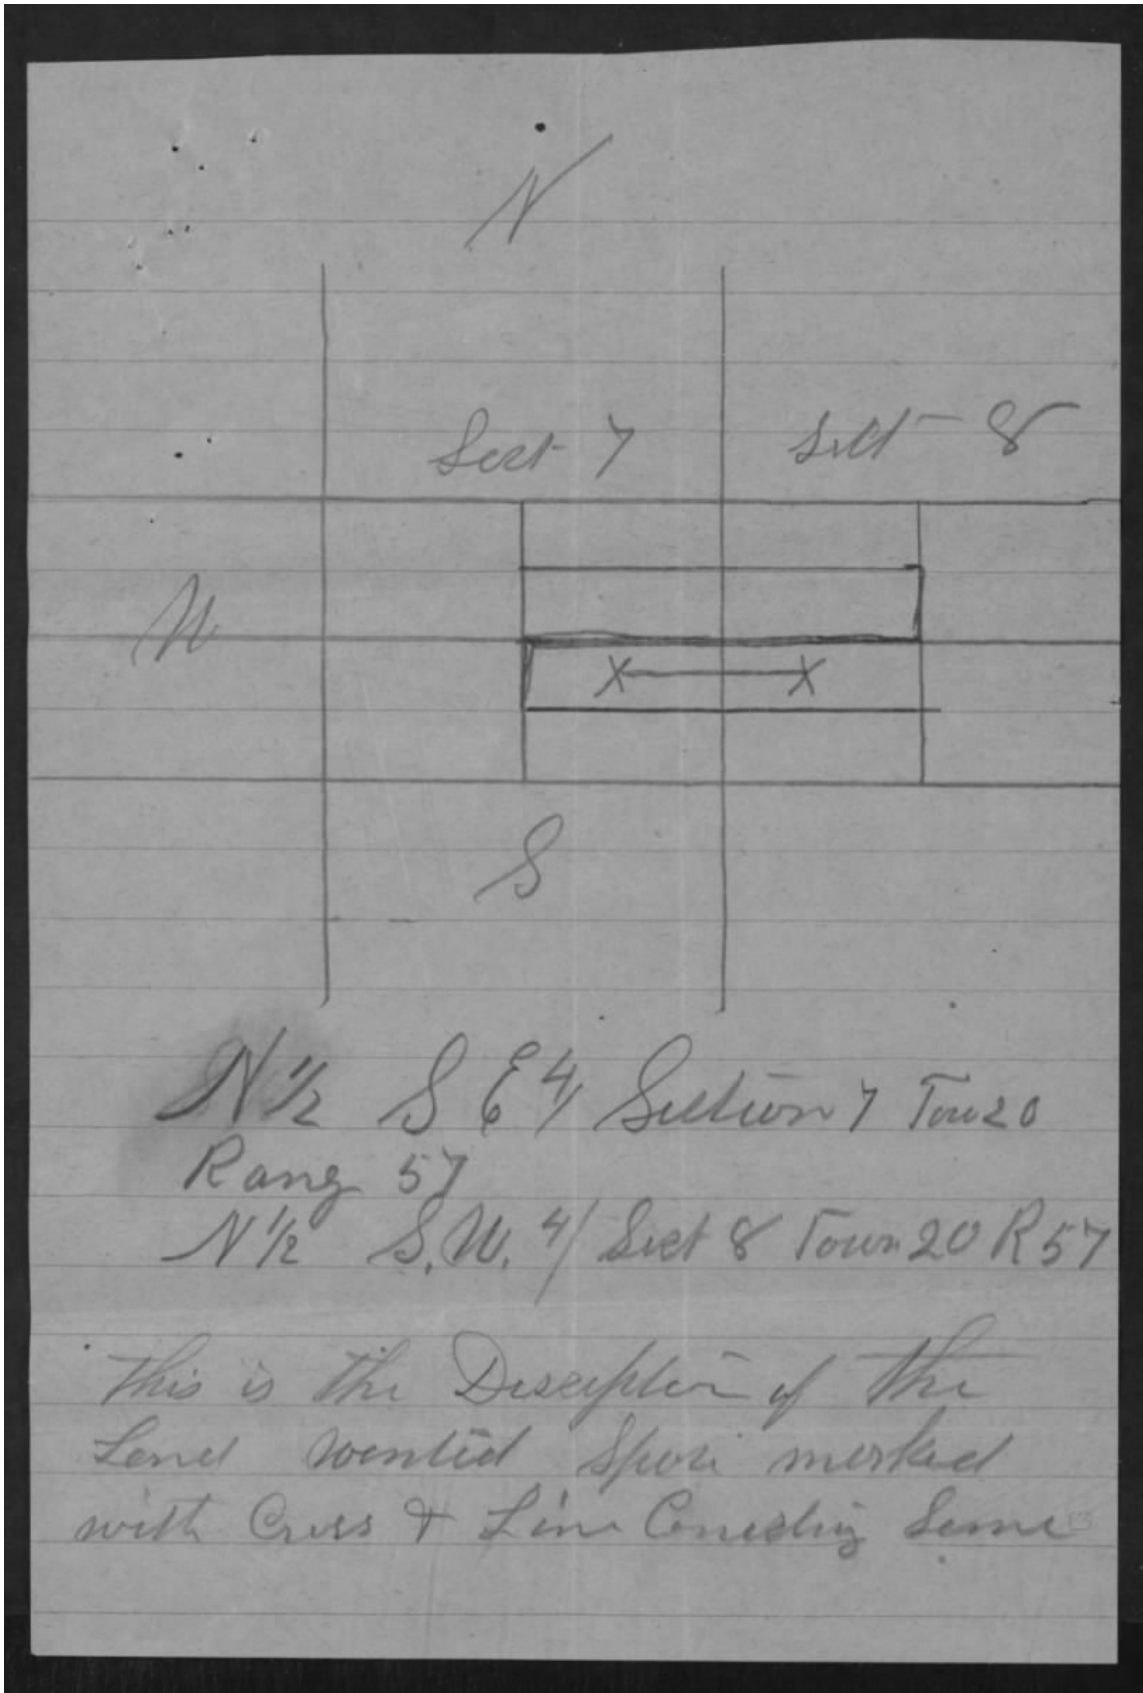 N
Sect 7 Sect 8
W
X X
S
N 1/2 S E 4/ Section 7 Tow 20
Rang 57
N 1/2 S. W. 4/ Sect 8 Town 20 R 57
This is the Desciption of the
Land wanted marked
with Cross & Line Conecting Same